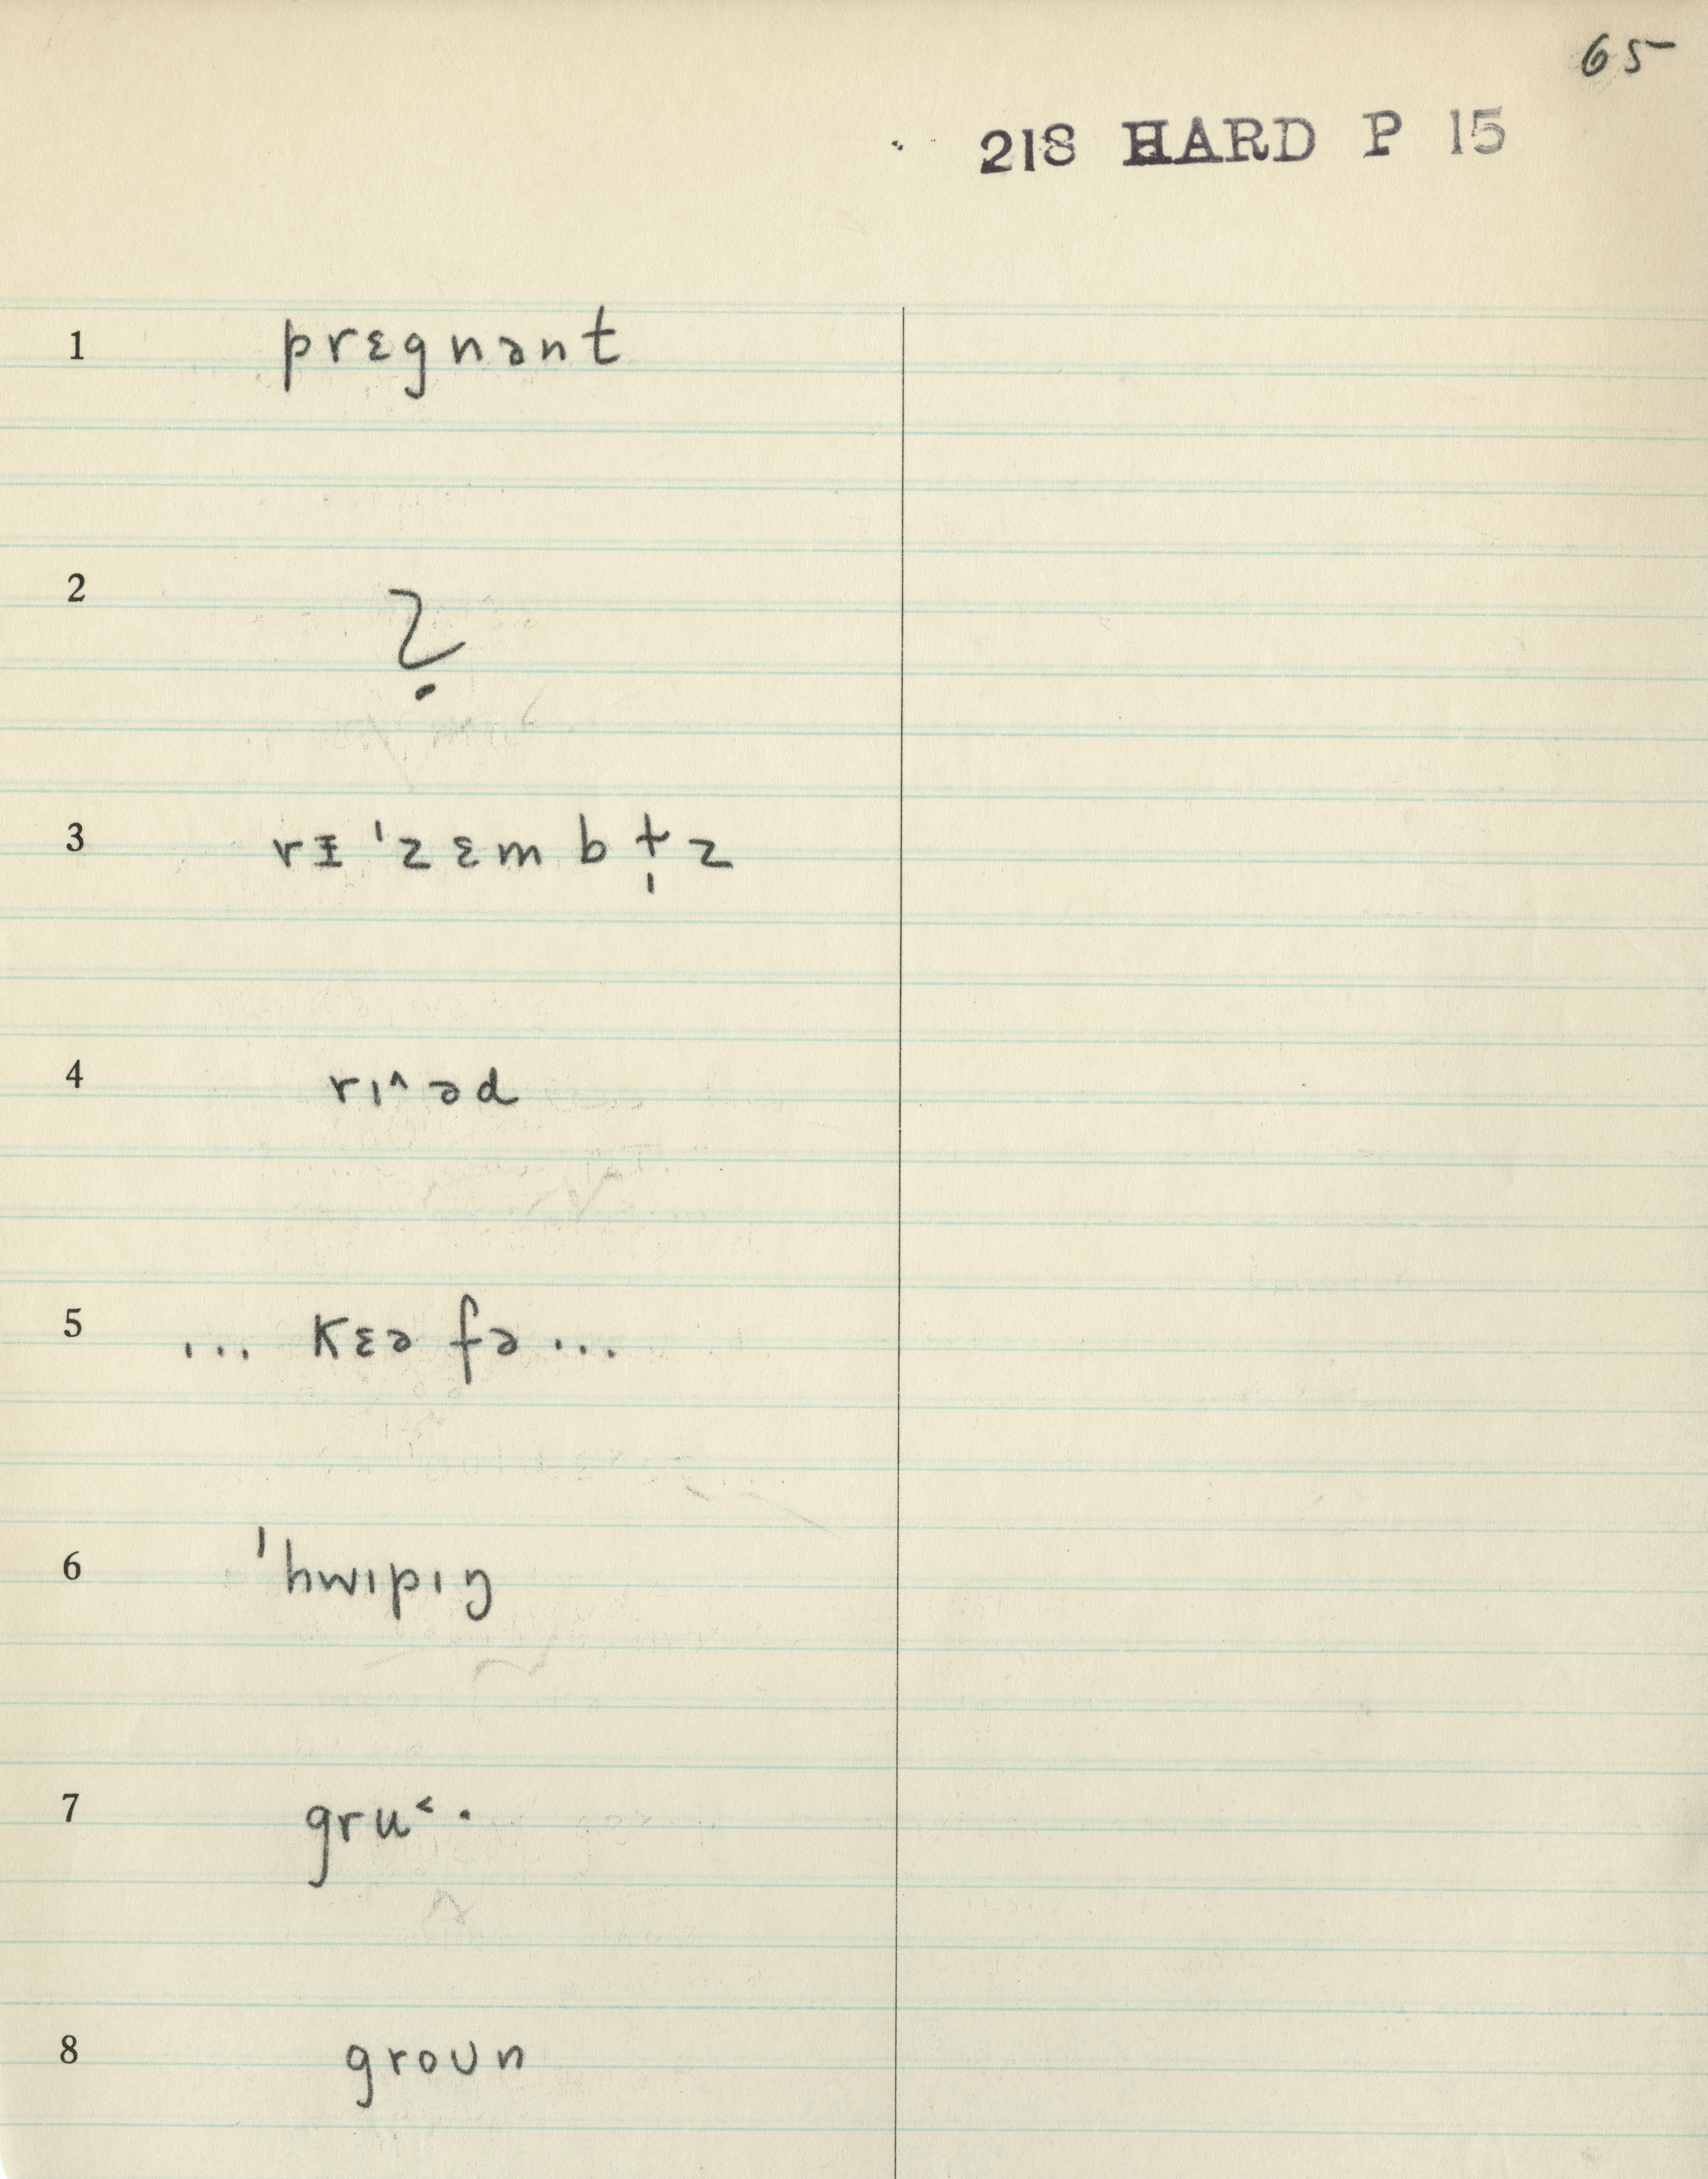 65
218 HARD P 15
1 prɛgnənt
2 ?
3 rᵻˈzɛmbɫ̩z
4 rɪ^əd
5 ... kɛə fə ...
6 ˈhwɪpɪŋ
7 gru˂·
8 groʊn